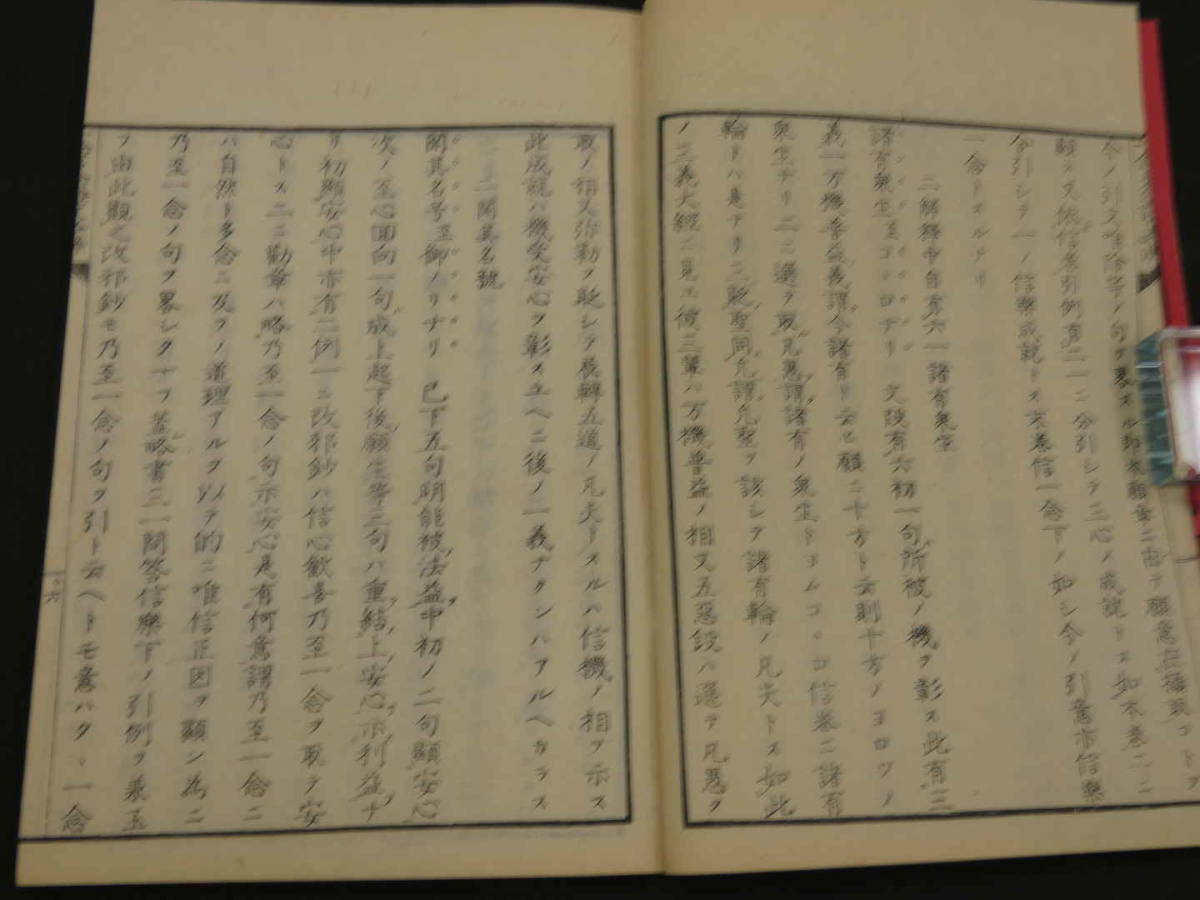 今ノ引文唯除等ノ句ヲ畧スル
分引シテ三心ノ成就トス如本巻二ニ
合引シテ一ノ信樂成就トス末巻信一念下ノ如シ今ノ引意亦信樂
一念トスルナリ
二解釋中自有六一諸有衆生
諸有衆生 文段有六初一句所被ノ機ヲ彰ス此有三
義一万機普益義謂今諸有ト云ヒ願ニ十方ト云則十方ノヨロツノ
衆生ナリ二ニ選テ取凡愚謂諸有ノ衆生トヨムコヽロ信巻ニ諸有
輪トハ是ナリ三貶聖同凡謂凡聖ヲ該シテ諸有輪ノ凡夫トス如此
ノ三義大經ニ見エ彼三輩ハ万機普益ノ相又五惡段ハ選テ凡愚ヲ
取ノ相又弥勒ヲ貶シテ展轉五道ノ凡夫トスルハ信機ノ相ヲ示ス
此成就ハ機受安心ヲ彰スユヘニ後ノ一義ナクンハアルヘカラス
二ニ聞其名號
聞其名号至御ノリナリ 已下五句明能被法益中初ノ二句顯安心
次ノ至心回向一句成上起下後願生等二句ハ重結上安心示利益ナ
リ初顯安心中亦有二例一ニ改邪鈔ハ信心歓喜乃至一念ヲ取テ安
心トス二ニ勸章ハ略乃至一念ノ句示安心是有何意謂乃至一念ニ
ハ自然ト多念ニ及フノ道理アルヲ以テ的ニ唯信正因ヲ顯ン為ニ
乃至一念ノ句ヲ畧シタマフ蓋略書三一問答信樂下ノ引例ヲ兼玉
フ由此觀之改邪鈔モ乃至一念ノ句ヲ引ト云ヘトモ意ハタヽ一念